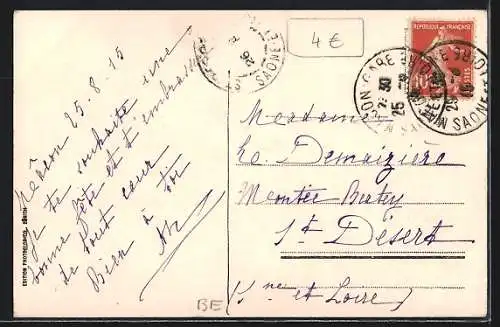 Mâcon 25.8.15
Je te souhaite une
bonne fête et t'embrasse
de tout cœur.
Bien à toi
4 €
REPUBLIQUE FRANÇAISE
POSTES
10
MACON GARE
SAONE
25
Madame
De
Montée
St Désert
Sne et Loire
BE